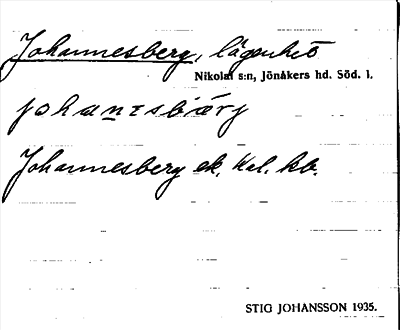 Johannesberg, lägenhet
Nikolai s:n, Jönåkers hd. Söd. l.
johanesbärj
Johannesberg ek. Kal. kb.
STIG JOHANSSON 1935.